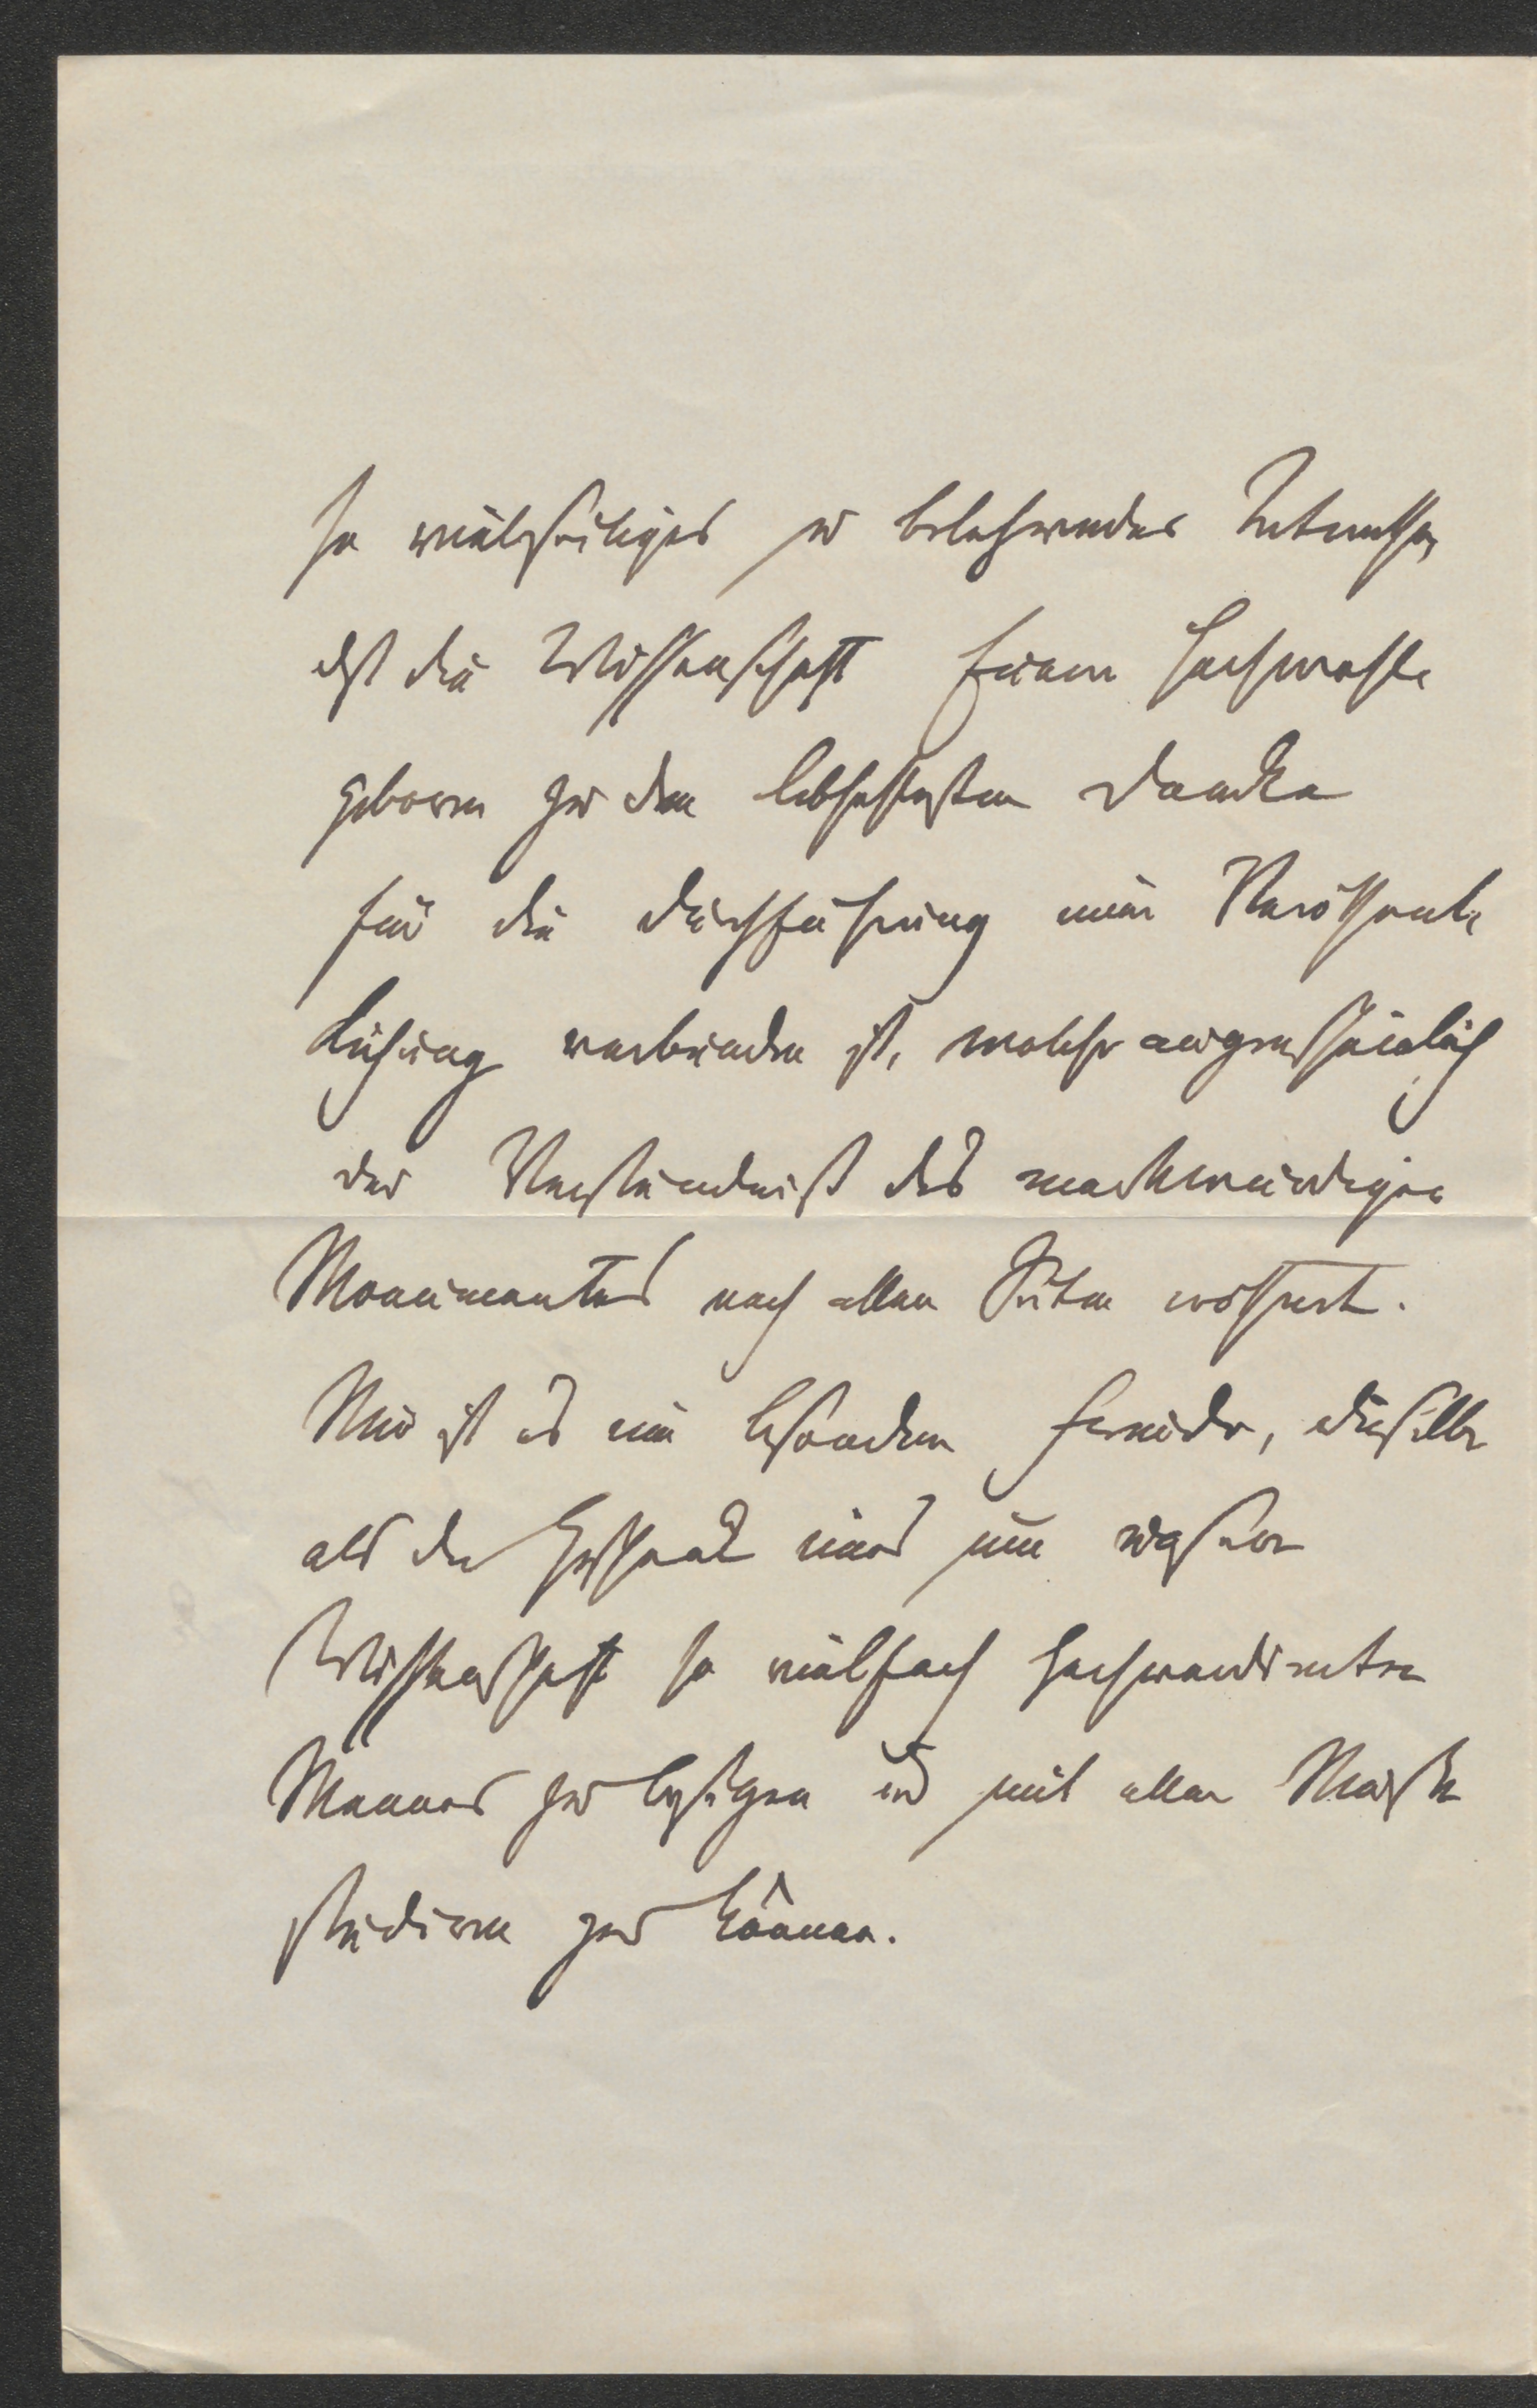 so vielseitiges u belehrendes Interesse,
daß die Wissenschaft Euerer Hochwohl-
geboren zu dem lebhaftesten Danke
für die Durchführung einer Veröffent-
lichung verbunden ist, welche augenscheinlich
das Verständniß des merkwürdigen
Monumentes nach allen Seiten eröffnet.
Mir ist es eine besondere Freude, dieselbe
als ein Geschenk eines um unsere
Wissenschaft so vielfach hochverdienten
Mannes zu besitzen und mit aller Muße
studieren zu können.